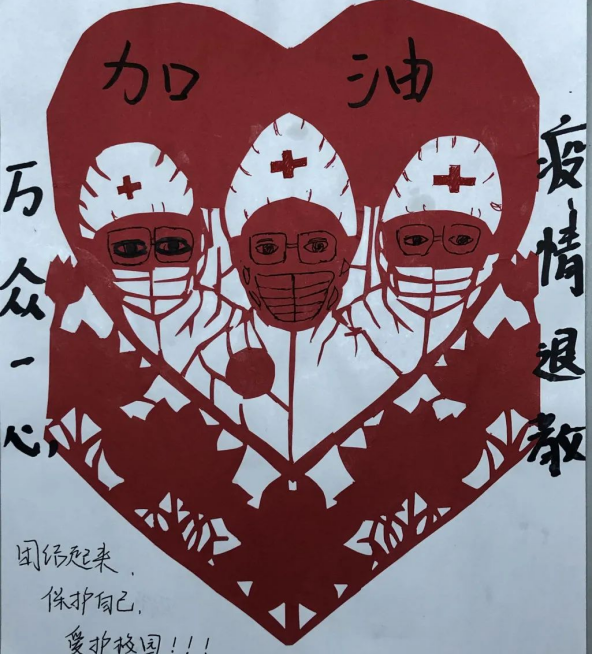 加油
万众一心,
疫情退散
团结起来,
保护自己,
爱护校园!!!